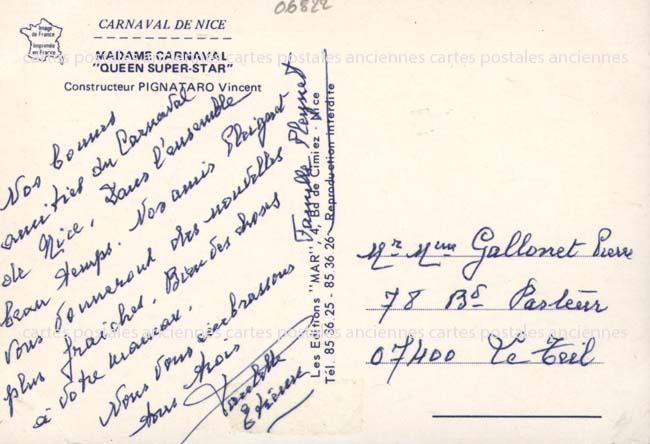 06822
Image
de France
Imprimée
en France
CARNAVAL DE NICE
MADAME CARNAVAL
"QUEEN SUPER-STAR"
Constructeur PIGNATARO Vincent
cartes postales anciennes cartes postales anciennes cartes postales anciennes
Nos bonnes
amitiés du Carnaval
de Nice, Dans l'ensemble
beau temps. Nos amis
vous donneront des nouvelles
plus fraîches. Bien des choses
à votre maman.
Nous vous embrassons
tous trois
Famille
Les Editions "MAR", 4, Bd de Cimiez - Nice
Tél. 85 36.25 - 85 36 26 Reproduction interdite
Mr Mme Gallonet Pierre
78 Bd Pasteur
07400 Le Teil
cartes postales anciennes cartes postales anciennes cartes postales anciennes